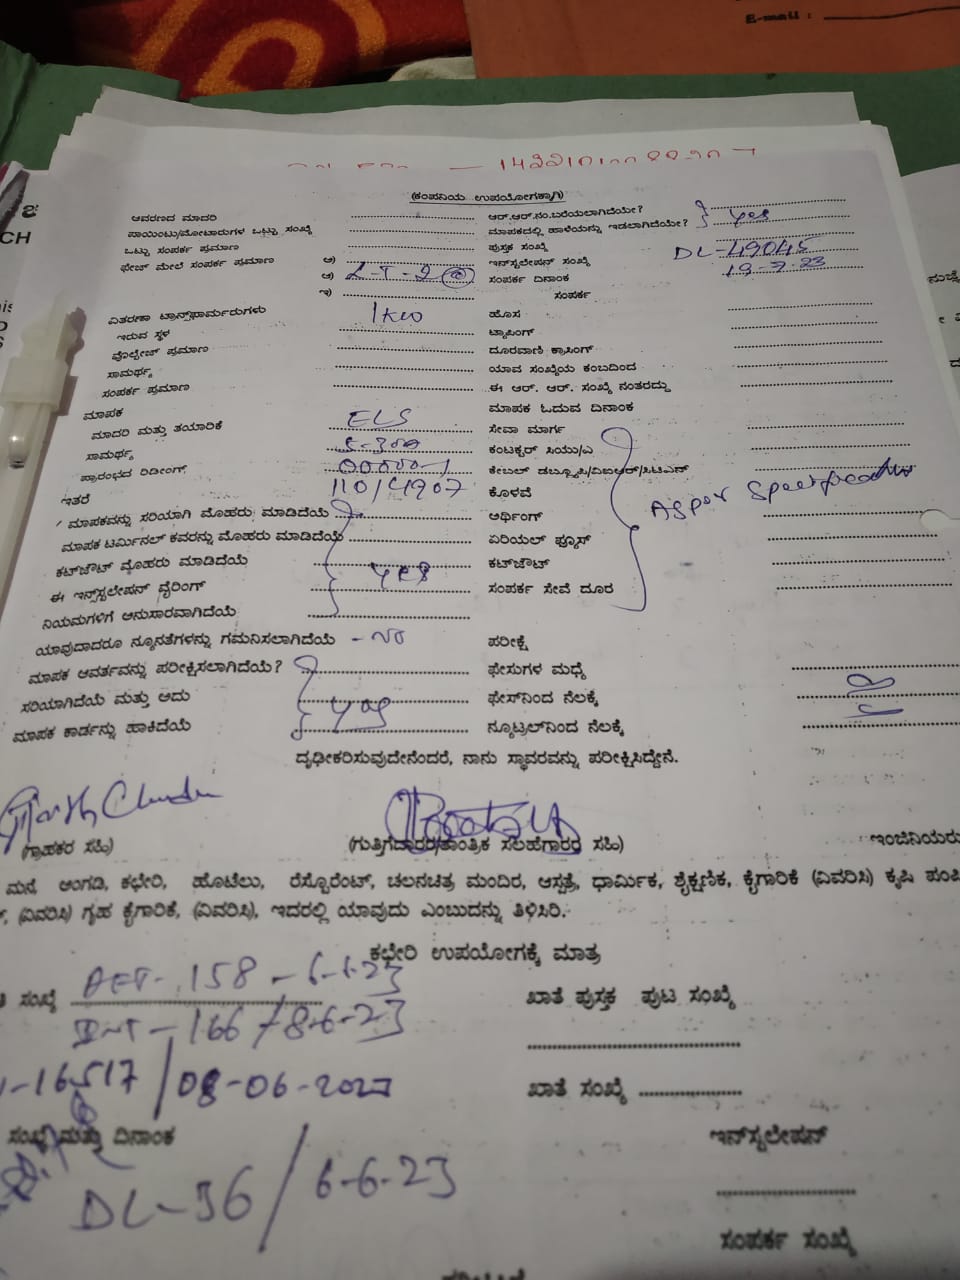 E-mail :
CH
(ಕಂಪನಿಯ ಉಪಯೋಗಕ್ಕಾಗಿ)
ಆವರಣದ ಮಾದರಿ
ಆರ್.ಆರ್.ನಂ.ಬರೆಯಲಾಗಿದೆಯೇ?
ಪಾಯಿಂಟು/ಮೋಟಾರುಗಳ ಒಟ್ಟು ಸಂಖ್ಯೆ
ಮಾಪಕದಲ್ಲಿ ಹಾಳೆಯನ್ನು ಇಡಲಾಗಿದೆಯೇ? } Yes
ಒಟ್ಟು ಸಂಪರ್ಕ ಪ್ರಮಾಣ
ಪುಸ್ತಕ ಸಂಖ್ಯೆ
ಫೇಜ್ ಮೇಲೆ ಸಂಪರ್ಕ ಪ್ರಮಾಣ ಅ)
ಇನ್‌ಸ್ಟಲೇಷನ್ ಸಂಖ್ಯೆ DL-49045
ಆ) L-T-2
ಸಂಪರ್ಕ ದಿನಾಂಕ 19-7-23
ಇ)
ಸಂಪರ್ಕ
ವಿತರಣಾ ಟ್ರಾನ್ಸ್‌ಫಾರ್ಮರುಗಳು 1kw
ಹೊಸ
ಇರುವ ಸ್ಥಳ
ಟ್ಯಾಪಿಂಗ್
ವೋಲ್ಟೇಜ್ ಪ್ರಮಾಣ
ದೂರವಾಣಿ ಕ್ರಾಸಿಂಗ್
ಸಾಮರ್ಥ್ಯ
ಯಾವ ಸಂಖ್ಯೆಯ ಕಂಬದಿಂದ
ಸಂಪರ್ಕ ಪ್ರಮಾಣ
ಈ ಆರ್. ಆರ್. ಸಂಖ್ಯೆ ನಂತರದ್ದು
ಮಾಪಕ
ಮಾಪಕ ಓದುವ ದಿನಾಂಕ
ಮಾದರಿ ಮತ್ತು ತಯಾರಿಕೆ ELS
ಸೇವಾ ಮಾರ್ಗ
ಸಾಮರ್ಥ್ಯ 5-30a
ಕಂಟಕ್ಟರ್ ಸಿಯು/ಎ
ಪ್ರಾರಂಭದ ರಿಡೀಂಗ್ 00000-1
ಕೇಬಲ್ ಡಬ್ಲ್ಯೂಪಿ/ವಿಐಆರ್/ಸಿಟಿಎಸ್
ಇತರೆ 110/4907
ಕೊಳವೆ
ಮಾಪಕವನ್ನು ಸರಿಯಾಗಿ ಮೊಹರು ಮಾಡಿದೆಯೆ
ಅರ್ಥಿಂಗ್ As per
ಮಾಪಕ ಟರ್ಮಿನಲ್ ಕವರನ್ನು ಮೊಹರು ಮಾಡಿದೆಯೆ
ಏರಿಯಲ್ ಫ್ಯೂಸ್
ಕಟ್‌ಔಟ್ ಮೊಹರು ಮಾಡಿದೆಯೆ
ಕಟ್‌ಔಟ್
ಈ ಇನ್ಸ್‌ಸ್ಟಲೇಷನ್ ವೈರಿಂಗ್ Yes
ಸಂಪರ್ಕ ಸೇವೆ ದೂರ
ನಿಯಮಗಳಿಗೆ ಅನುಸಾರವಾಗಿದೆಯೆ
ಯಾವುದಾದರೂ ನ್ಯೂನತೆಗಳನ್ನು ಗಮನಿಸಲಾಗಿದೆಯೆ - No
ಪರೀಕ್ಷೆ
ಮಾಪಕ ಆವರ್ತವನ್ನು ಪರೀಕ್ಷಿಸಲಾಗಿದೆಯೆ?
ಫೇಸುಗಳ ಮಧ್ಯೆ
ಸರಿಯಾಗಿದೆಯೆ ಮತ್ತು ಅದು
ಫೇಸ್‌ನಿಂದ ನೆಲಕ್ಕೆ
ಮಾಪಕ ಕಾರ್ಡನ್ನು ಹಾಕಿದೆಯೆ Yes
ನ್ಯೂಟ್ರಲ್‌ನಿಂದ ನೆಲಕ್ಕೆ
ದೃಢೀಕರಿಸುವುದೇನೆಂದರೆ, ನಾನು ಸ್ಥಾವರವನ್ನು ಪರೀಕ್ಷಿಸಿದ್ದೇನೆ.
(ಗ್ರಾಹಕರ ಸಹಿ)
(ಗುತ್ತಿಗೆದಾರರ/ತಾಂತ್ರಿಕ ಸಲಹೆಗಾರರ ಸಹಿ)
ಇಂಜಿನಿಯರು
ಮನೆ, ಅಂಗಡಿ, ಕಛೇರಿ, ಹೊಟೆಲು, ರೆಸ್ಟೊರೆಂಟ್, ಚಲನಚಿತ್ರ ಮಂದಿರ, ಆಸ್ಪತ್ರೆ, ಧಾರ್ಮಿಕ, ಶೈಕ್ಷಣಿಕ, ಕೈಗಾರಿಕೆ (ವಿವರಿಸಿ) ಕೃಷಿ ಪಂಪಿ
(ವಿವರಿಸಿ) ಗೃಹ ಕೈಗಾರಿಕೆ, (ವಿವರಿಸಿ), ಇದರಲ್ಲಿ ಯಾವುದು ಎಂಬುದನ್ನು ತಿಳಿಸಿರಿ.
ಕಛೇರಿ ಉಪಯೋಗಕ್ಕೆ ಮಾತ್ರ
ಸಂಖ್ಯೆ 158-6-6-23
ಖಾತೆ ಪುಸ್ತಕ ಪುಟ ಸಂಖ್ಯೆ
INT-166/8-6-23
-16517/08-06-2023
ಖಾತೆ ಸಂಖ್ಯೆ
ಸಂಖ್ಯೆ ಮತ್ತು ದಿನಾಂಕ
ಇನ್‌ಸ್ಟಲೇಷನ್
DL-36/6-6-23
ಸಂಪರ್ಕ ಸಂಖ್ಯೆ